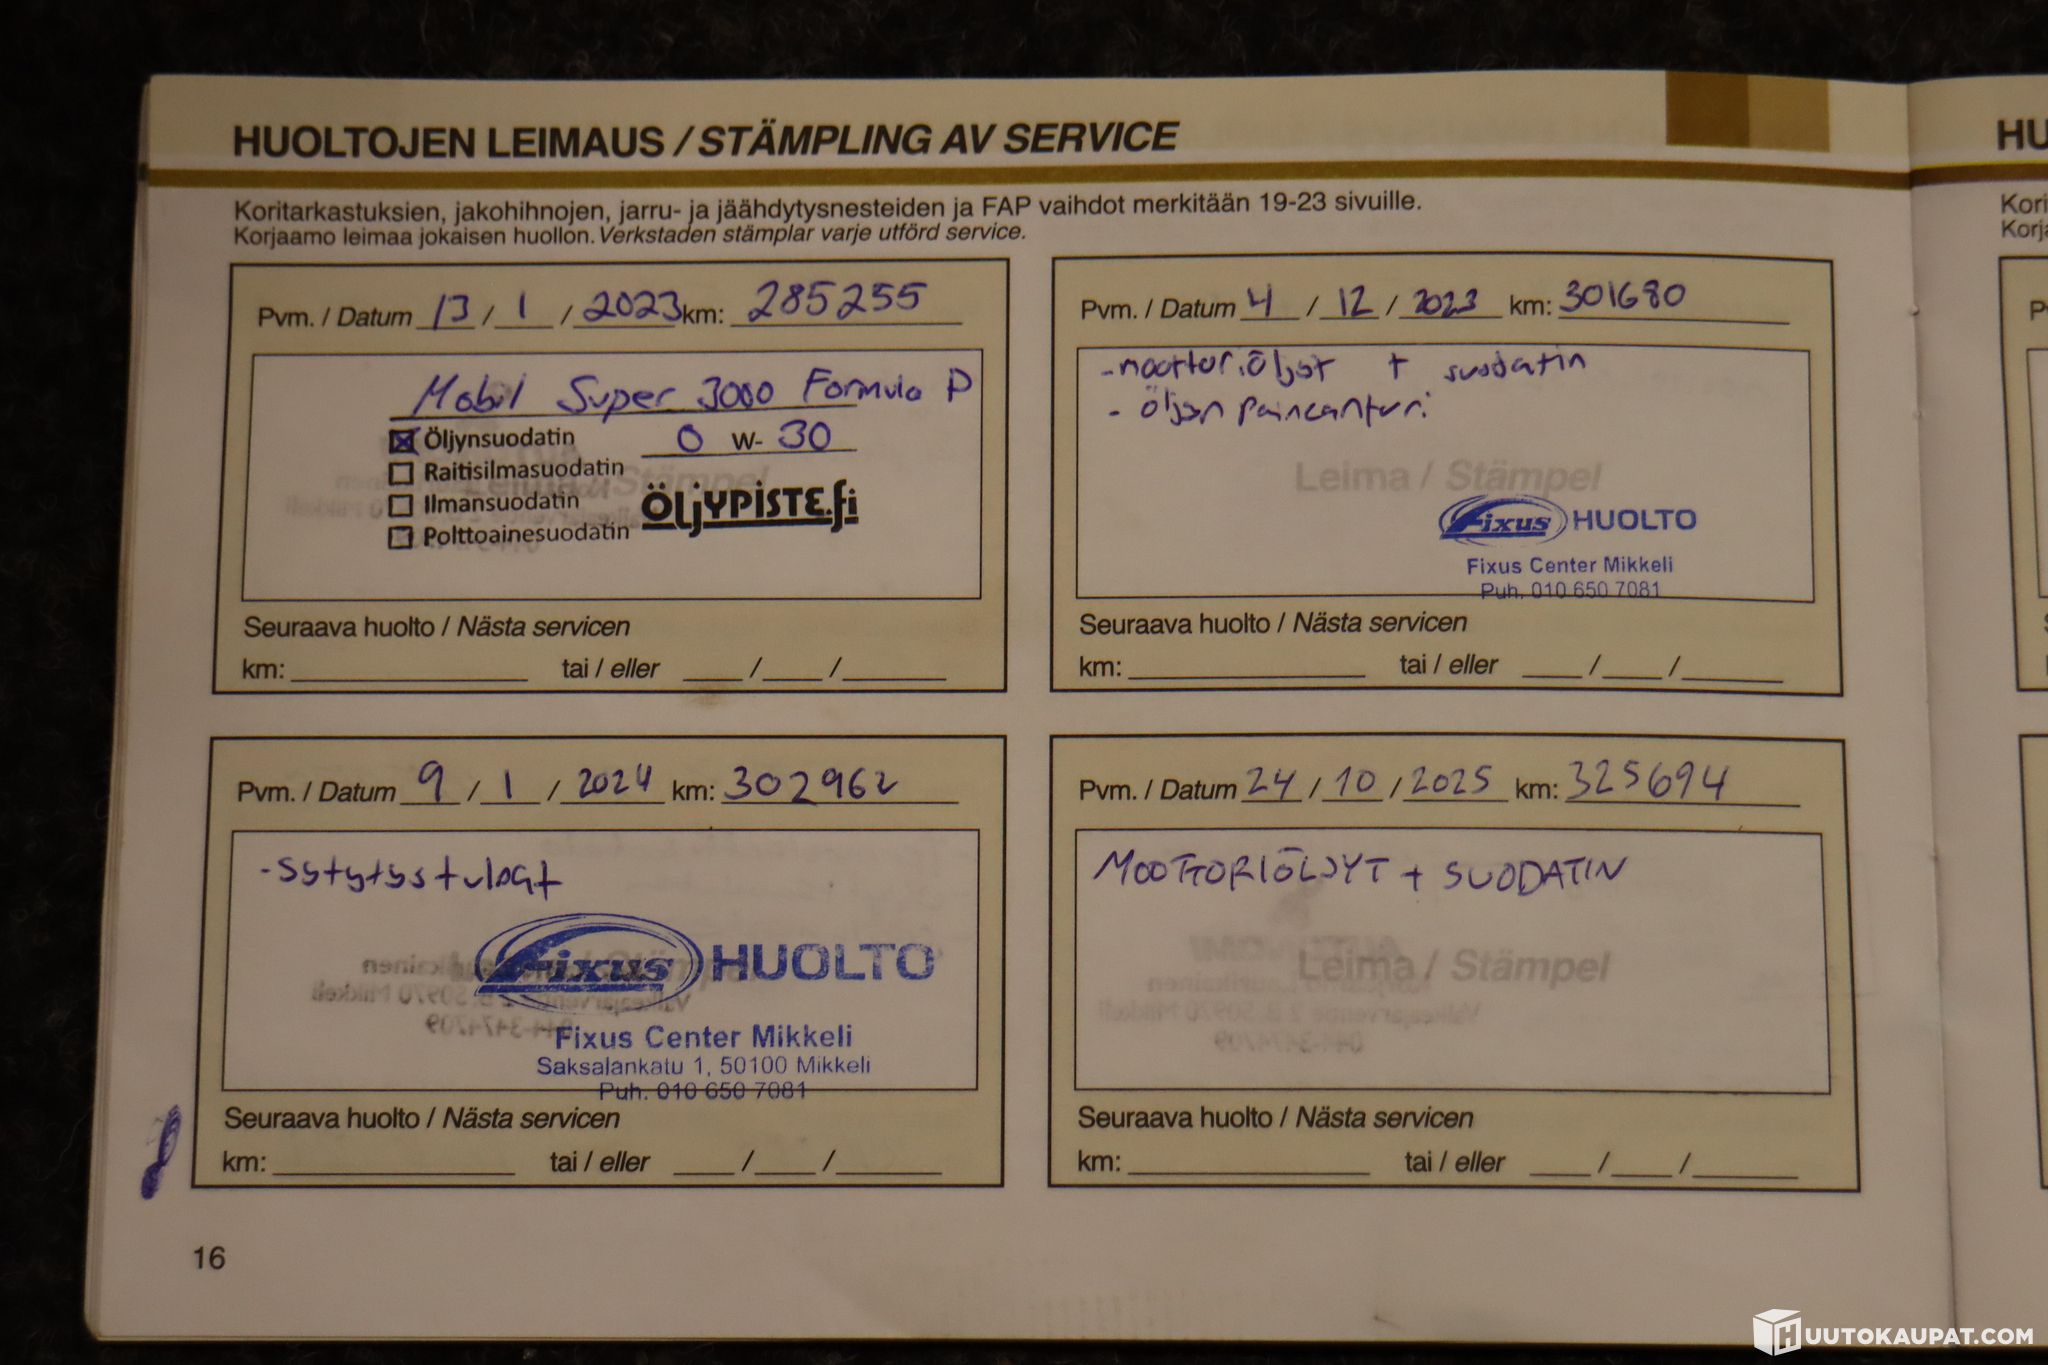 HUOLTOJEN LEIMAUS / STÄMPLING AV SERVICE
Koritarkastuksien, jakohihnojen, jarru- ja jäähdytysnesteiden ja FAP vaihdot merkitään 19-23 sivuille.
Korjaamo leimaa jokaisen huollon. Verkstaden stämplar varje utförd service.
Pvm. / Datum 13 / 1 / 2023 km: 285255
Mobil Super 3000 Formula P
Öljynsuodatin 0 W- 30
Raitisilmasuodatin
Ilmansuodatin
Polttoainesuodatin
ÖLJYPISTE.fi
Seuraava huolto / Nästa servicen
km: tai / eller / /
Pvm. / Datum 4 / 12 / 2023 km: 301680
- moottoriöljyt + suodatin
- öljyn paineanturi
Leima / Stämpel
Fixus HUOLTO
Fixus Center Mikkeli
Puh. 010 650 7081
Seuraava huolto / Nästa servicen
km: tai / eller / /
Pvm. / Datum 9 / 1 / 2024 km: 302962
- sytytystulpat
Fixus HUOLTO
Fixus Center Mikkeli
Saksalankatu 1, 50100 Mikkeli
Puh. 010 650 7081
Seuraava huolto / Nästa servicen
km: tai / eller / /
Pvm. / Datum 24 / 10 / 2025 km: 325694
MOOTTORIÖLJYT + SUODATIN
Leima / Stämpel
Seuraava huolto / Nästa servicen
km: tai / eller / /
16
HU
Kori
Korja
HUUTOKAUPAT.COM